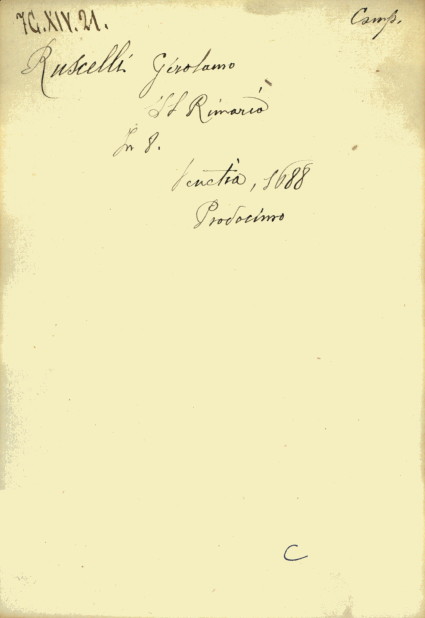 7G.XIV.21.
Camp.
Ruscelli Girolamo
Il Rimario
In 8.
Venetia, 1688
Prodocimo
C